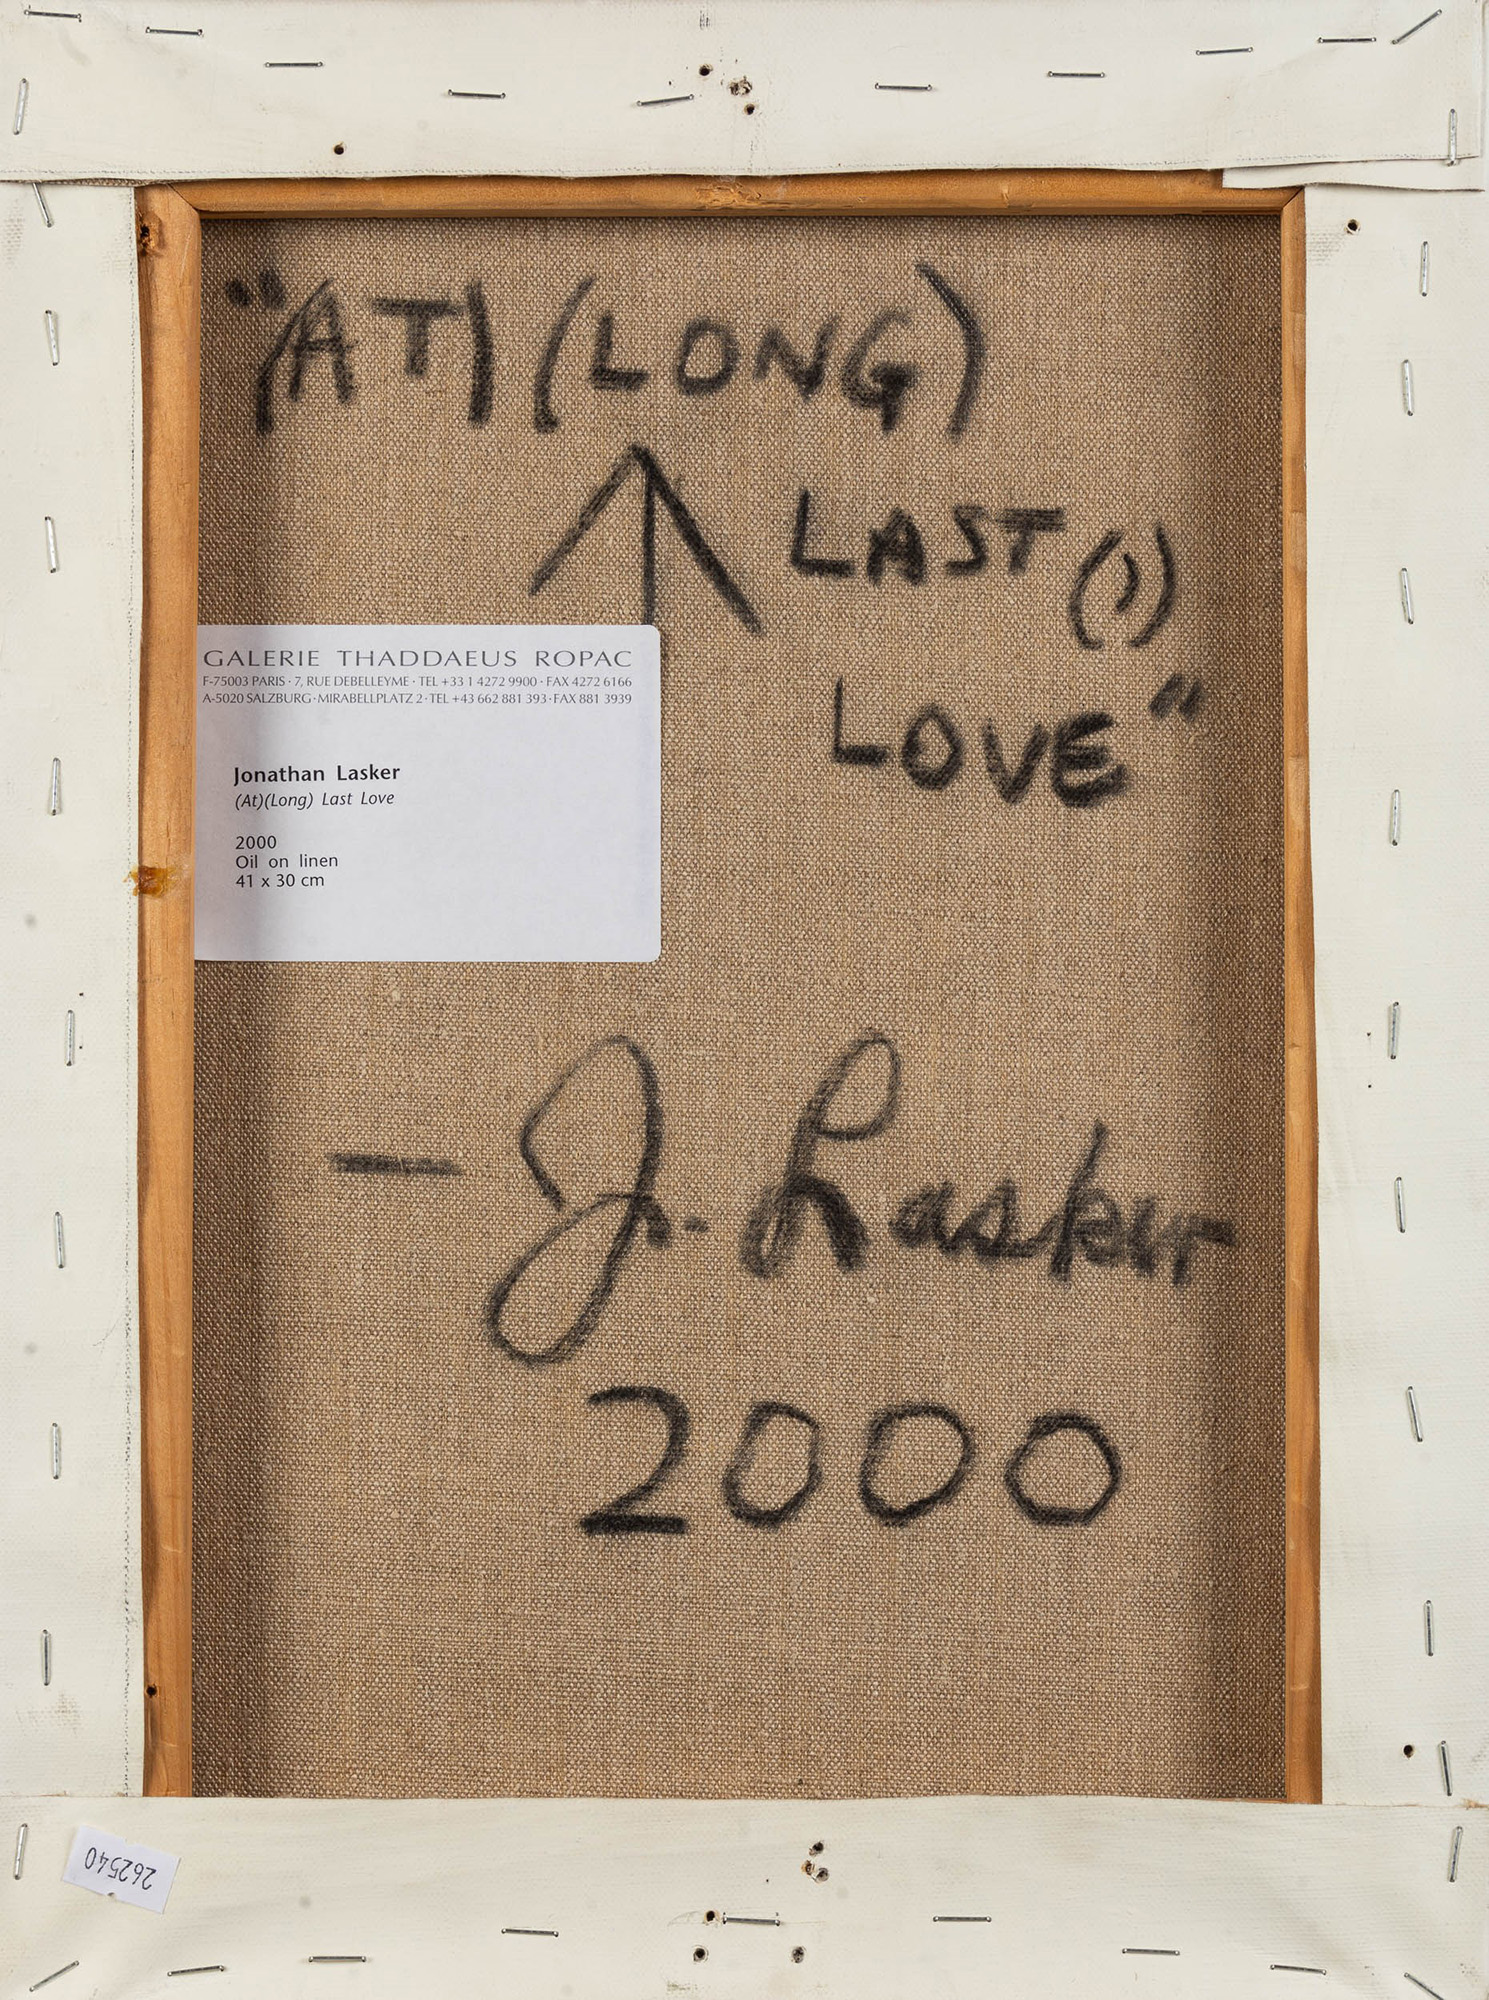 "(AT) (LONG)
LAST (,)
LOVE"
GALERIE THADDAEUS ROPAC
F-75003 PARIS · 7, RUE DEBELLEYME · TEL +33 1 4272 9900 · FAX 4272 6166
A-5020 SALZBURG · MIRABELLPLATZ 2 · TEL +43 662 881 393 · FAX 881 3939
Jonathan Lasker
(At)(Long) Last Love
2000
Oil on linen
41 x 30 cm
— J. Lasker
2000
262540